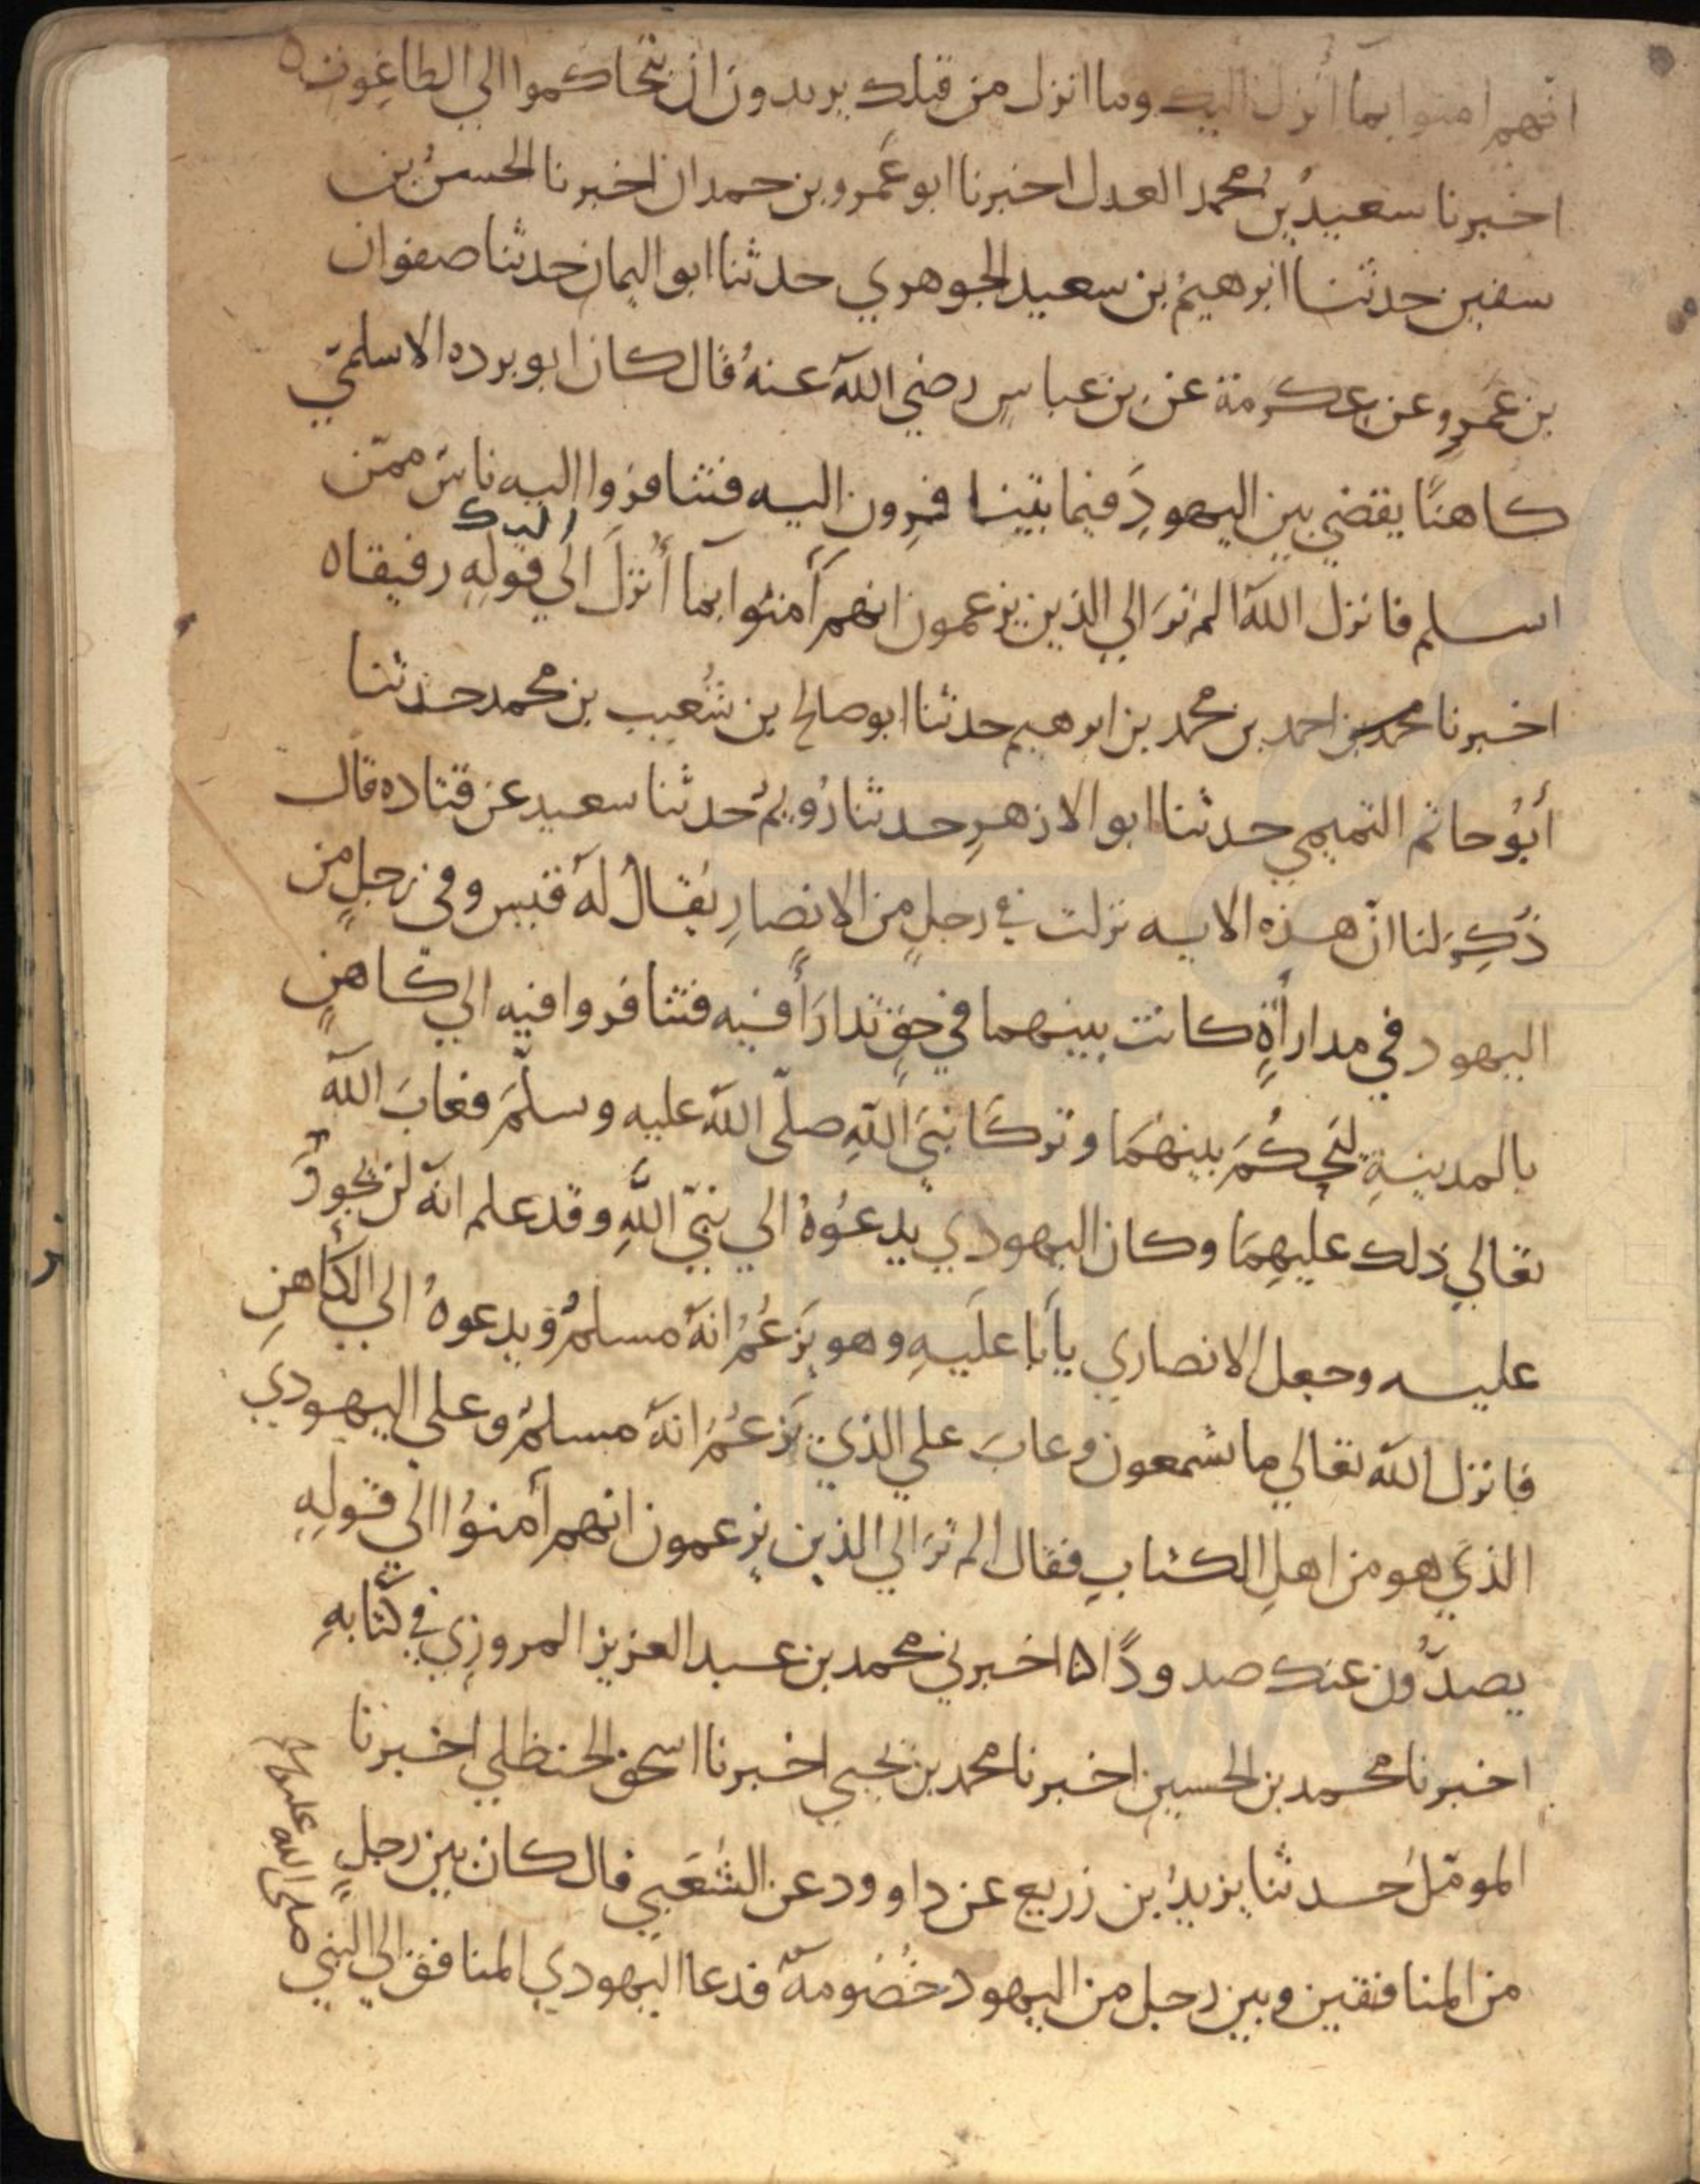 انهم امنوا بما أنزل اليك وما انزل من قبلك يريدون ان يتحاكموا الي الطاغوت ه
اخبرنا سعيدُ بنُ محمد العدل اخبرنا ابو عَمرو بن حمدان اخبرنا الحسنُ بن
سفين حدثنا ابرهيمُ بن سعيد الجوهري حدثنا ابو اليمان حدثنا صفوان
بن عَمرٍو عن عِكرمة عن بن عباسٍ رضي اللهُ عنهُ قال كان ابو برده الاسلمّي
كاهنًا يقضي بين اليهودِ فيما يتنافرون اليه فتنافروا اليه ناسٌ ممّن
اسلم فانزل اللهُ الم ترَ الي الذين يزعمون انهم أمنُوا بما أُنزلَ اليك الَي قولِهِ رفيقا ه
اخبرنا محمد بن احمد بن محمد بن ابرهيم حدثنا ابو صالح بن شُعيب بن محمد حدثنا
أبُو حاتم التميمي حدثنا ابو الازهرِ حدثنا رُويمُ حدثنا سعيد عن قتاده قال
ذُكِرَ لنا انّ هذه الايه نزلت في رجلٍ من الانصارِ يُقالُ لهُ قيس وفي رجلٍ من
اليهود في مداراةٍ كانت بينهما في حقٍ تدارَأ فيه فتنافروا فيه الي كاهنٍ
بالمدينةِ ليَحكُمَ بينهمَا وتركَا نبيَ اللهِ صلّي اللهُ عليه وسلّمَ فعابَ اللهُ
تعالي ذلك عليهِمَا وكان اليهودي يدعُوهُ الي نبيّ اللهِ وقد علم انهُ لن يجورَ
عليه وجعل الانصاري يأبا عليَهِ وهو يَزعُمُ انهُ مسلمُ ويدعوهُ الي الكاهنِ
فانزل اللهُ تعالي ما تسمعون وعابَ علي الذي يَزعُمُ انهُ مسلمُ وعلي اليهودي
الذي هو من اهلِ الكتابِ فقال الم ترَ الي الذين يزعمون انهم أمنوُا الَي قولِهِ
يصدّون عنك صدودًا ه اخبرني محمد بن عبد العزيز المروزي في كتابهِ
اخبرنا محمد بن الحسين اخبرنا محمد بن يحيي اخبرنا اسحق الحنظلي اخبرنا
المومّلُ حدثنا يزيدُ بن زريع عن داوود عن الشَعبي قال كان بين رجلٍ
من المنافقين وبين رجل من اليهود خُصُومهٌ فدعا اليهودي المنافقَ الي النبي
صلى الله عليه